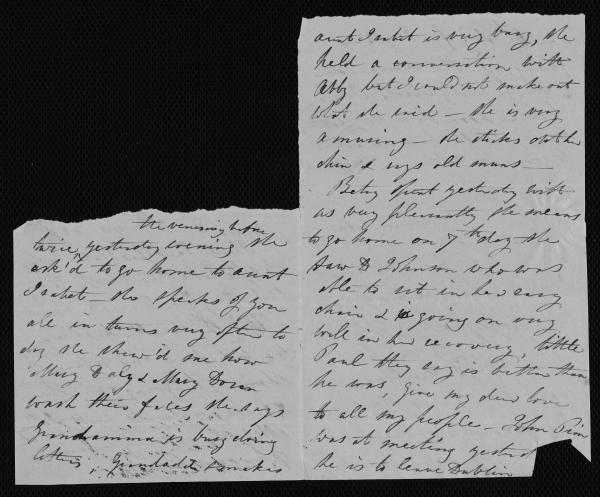 the evening before
twice, yesterday evening she
ask'd to go home to aunt
Isabel - she speaks of you
all in turns very often to
day she shew'd me how
Mary Daly & Mary Doran
wash their faces, she says
Grandmamma is busy doing
letters, Grandadda makes
aunt Isabel is very busy, she
held a conversation with
Abby but I could not make out
what she said - she is very
amusing - she sticks out her
chin & says old mums -
Betsy spent yesterday with
us very pleasantly she means
to go home on 7th day she
saw D Johnson who was
able to sit in her easy
chair & is going on very
well in her recovery, little
Paul they say is better than
he was, give my dear love
to all my people - John Pim
was at meeting yesterd
he is to leave Dublin